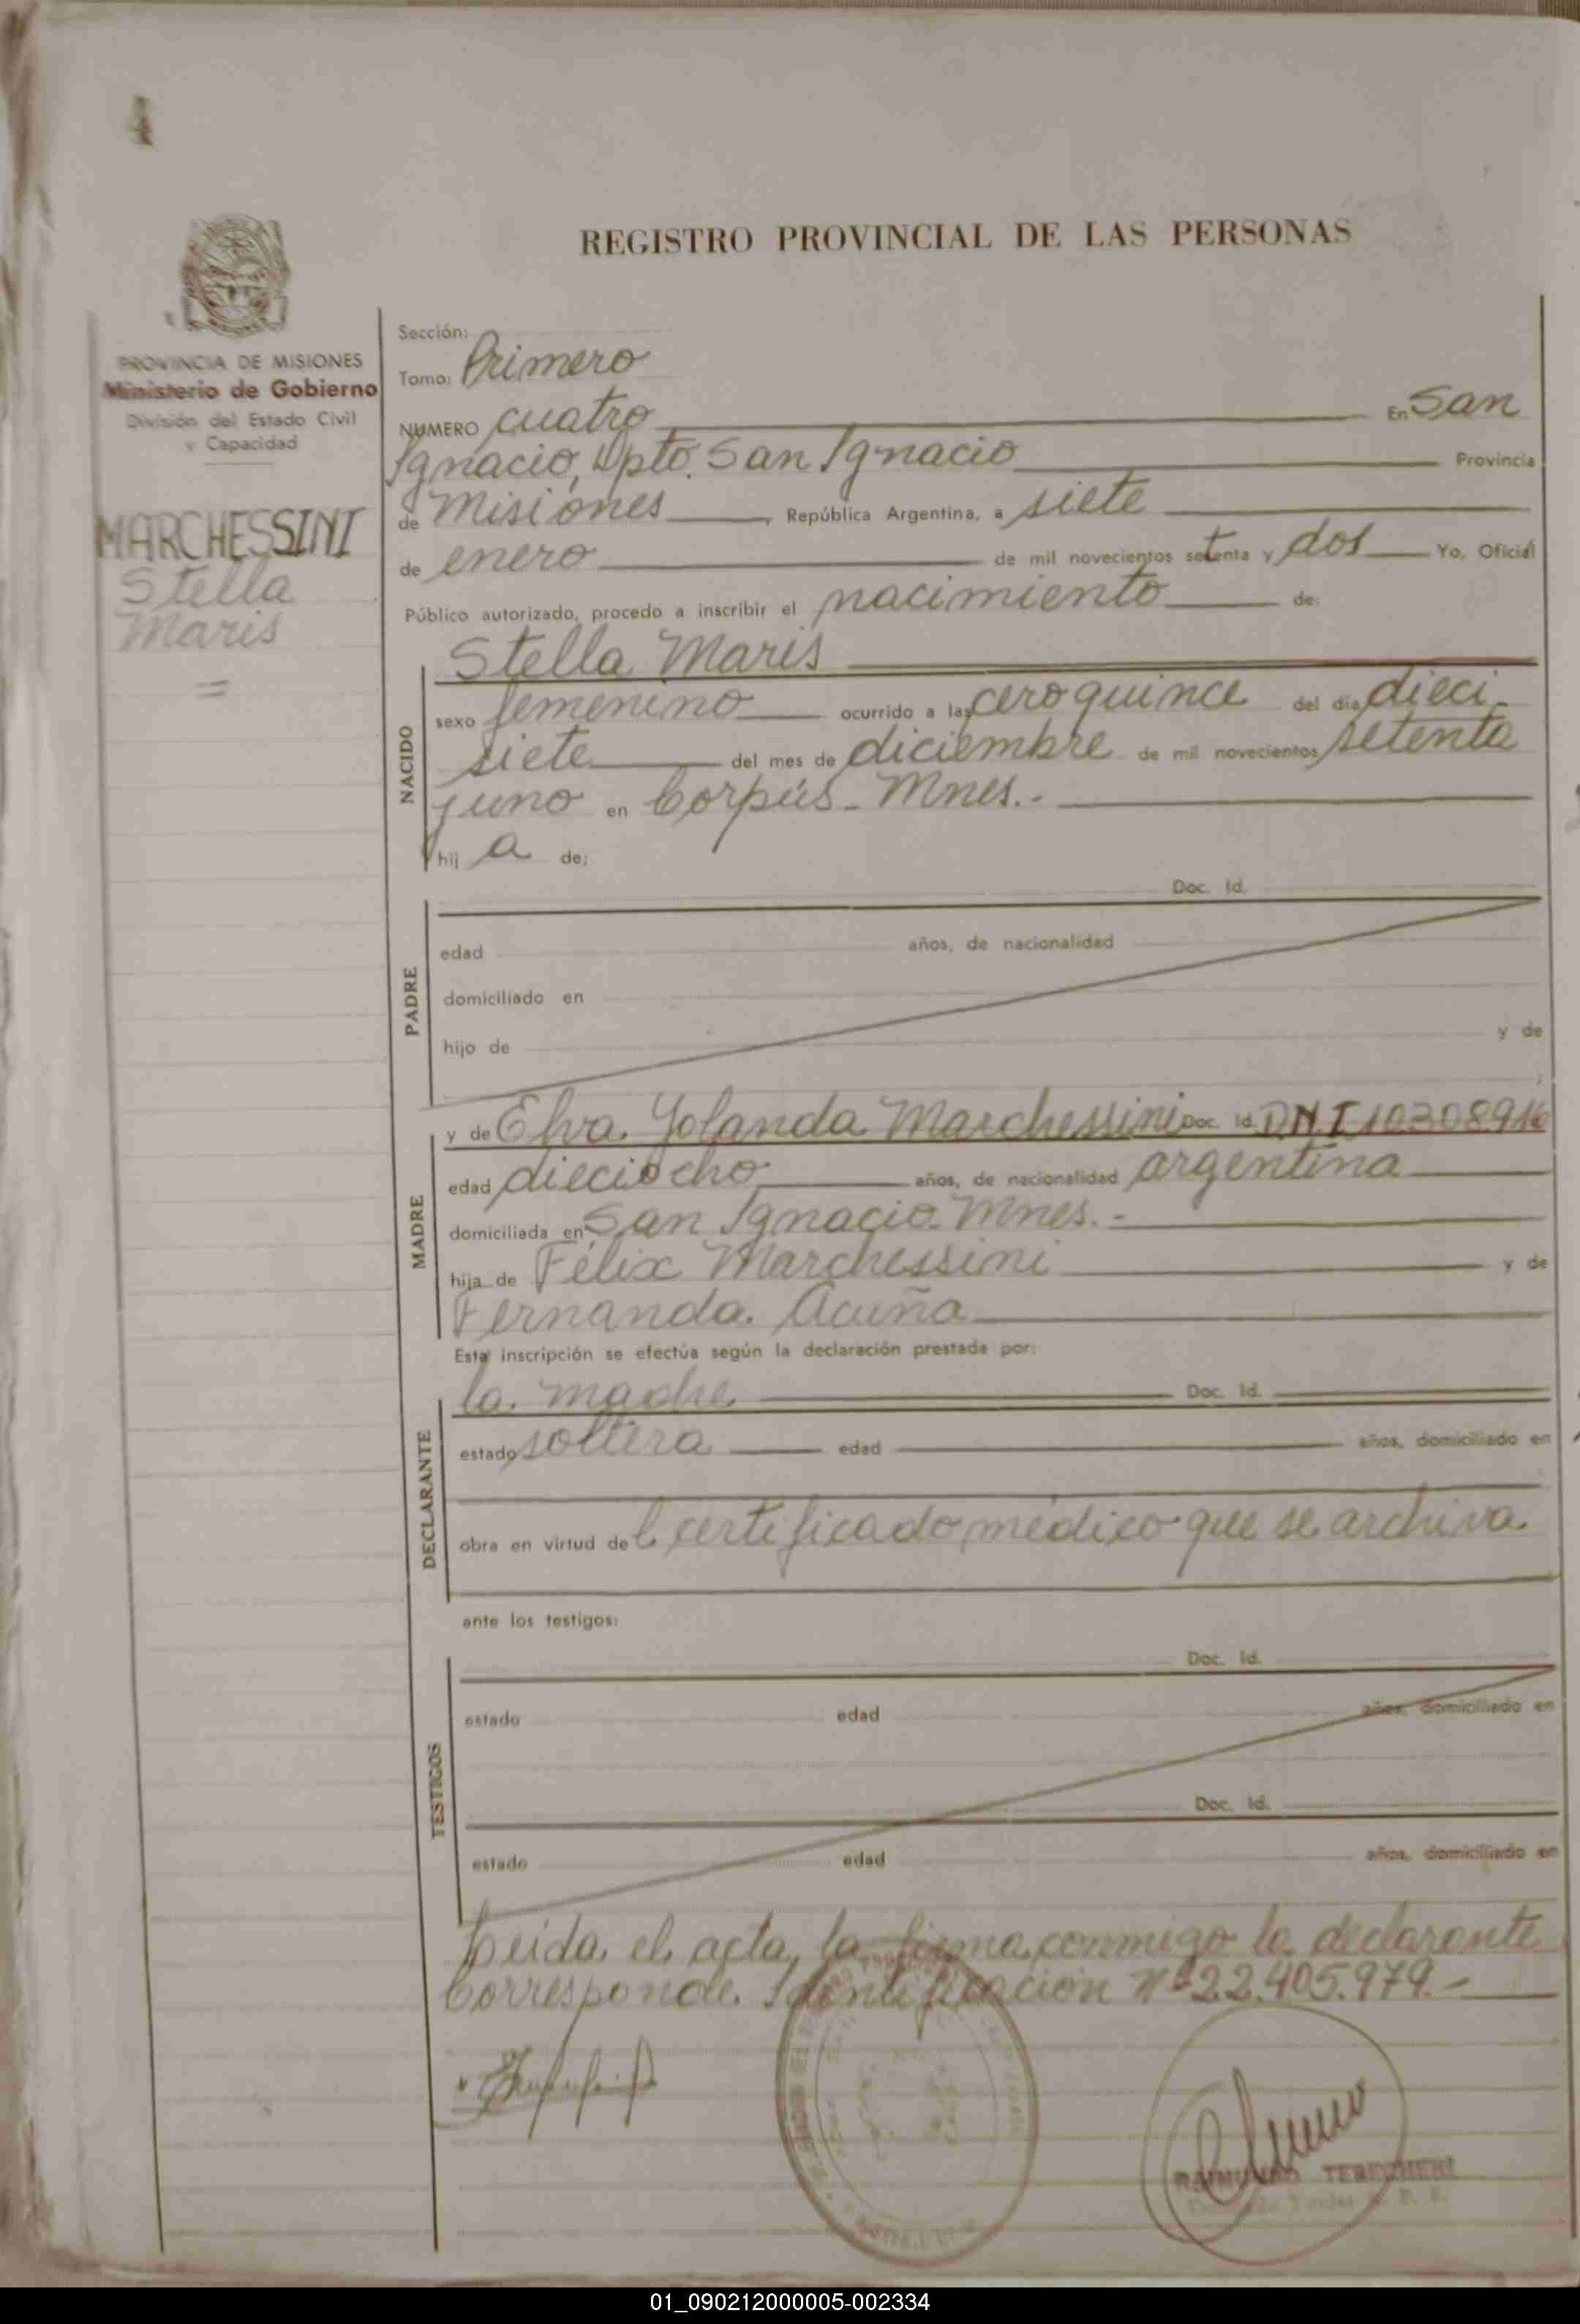 4
REGISTRO PROVINCIAL DE LAS PERSONAS
PROVINCIA DE MISIONES
Ministerio de Gobierno
División del Estado Civil
y Capacidad
MARCHESSINI
Stella
Maris
=
Sección:
Tomo: Primero
NUMERO cuatro En San
Ignacio, Dpto. San Ignacio Provincia
de Misiones, República Argentina, a siete
de enero de mil novecientos setenta y dos Yo, Oficial
Público autorizado, procedo a inscribir el nacimiento de:
NACIDO
Stella Maris
sexo femenino ocurrido a las cero quince del día dieci
siete del mes de diciembre de mil novecientos setenta
y uno en Corpús - Mnes.-
hij a de;
PADRE
Doc. Id.
edad años, de nacionalidad
domiciliado en
hijo de y de
;
MADRE
y de Elva Yolanda Marchessini Doc. Id. D.N.I 10308916
edad dieciocho años, de nacionalidad argentina
domiciliada en San Ignacio Mnes.-
hija de Félix Marchessini y de
Fernanda Acuña
Esta inscripción se efectúa según la declaración prestada por:
DECLARANTE
la madre Doc. Id.
estado soltera edad años, domiciliado en
obra en virtud del certificado médico que se archiva
ante los testigos:
TESTIGOS
Doc. Id.
estado edad años, domiciliado en
Doc. Id.
estado edad años, domiciliado en
Leida el acta, la firma conmigo la declarante
Corresponde Identificación Nº 22.405.979.-
RAIMUNDO
01_090212000005-002334